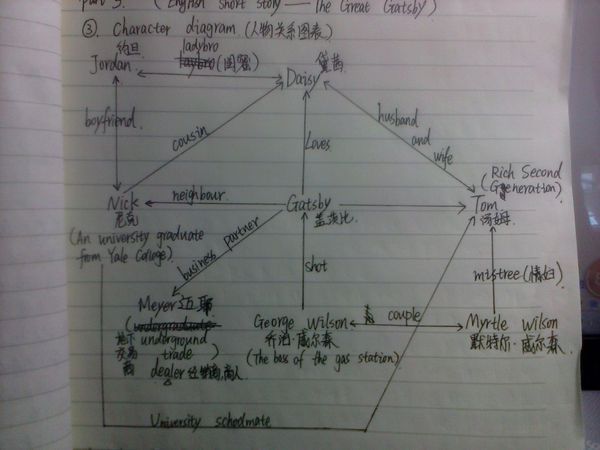 part 3. (English short story —— The Great Gatsby)
③. Character diagram (人物关系图表)
约旦 ladybro
Jordan (闺密) Daisy 黛茜
boyfriend.
cousin
Loves
husband
and
wife
(Rich Second
Generation)
Nick neighbour Gatsby Tom
尼克 盖茨比 汤姆
(An university graduate
from Yale College)
business partner
shot
mistree (情妇)
Meyer 迈耶
(undergraduate
George Wilson couple Myrtle Wilson
地下 underground 乔治·威尔森 默特尔·威尔森
交易 trade ) (The boss of the gas station)
商 dealer 经销商,商人
University schoolmate